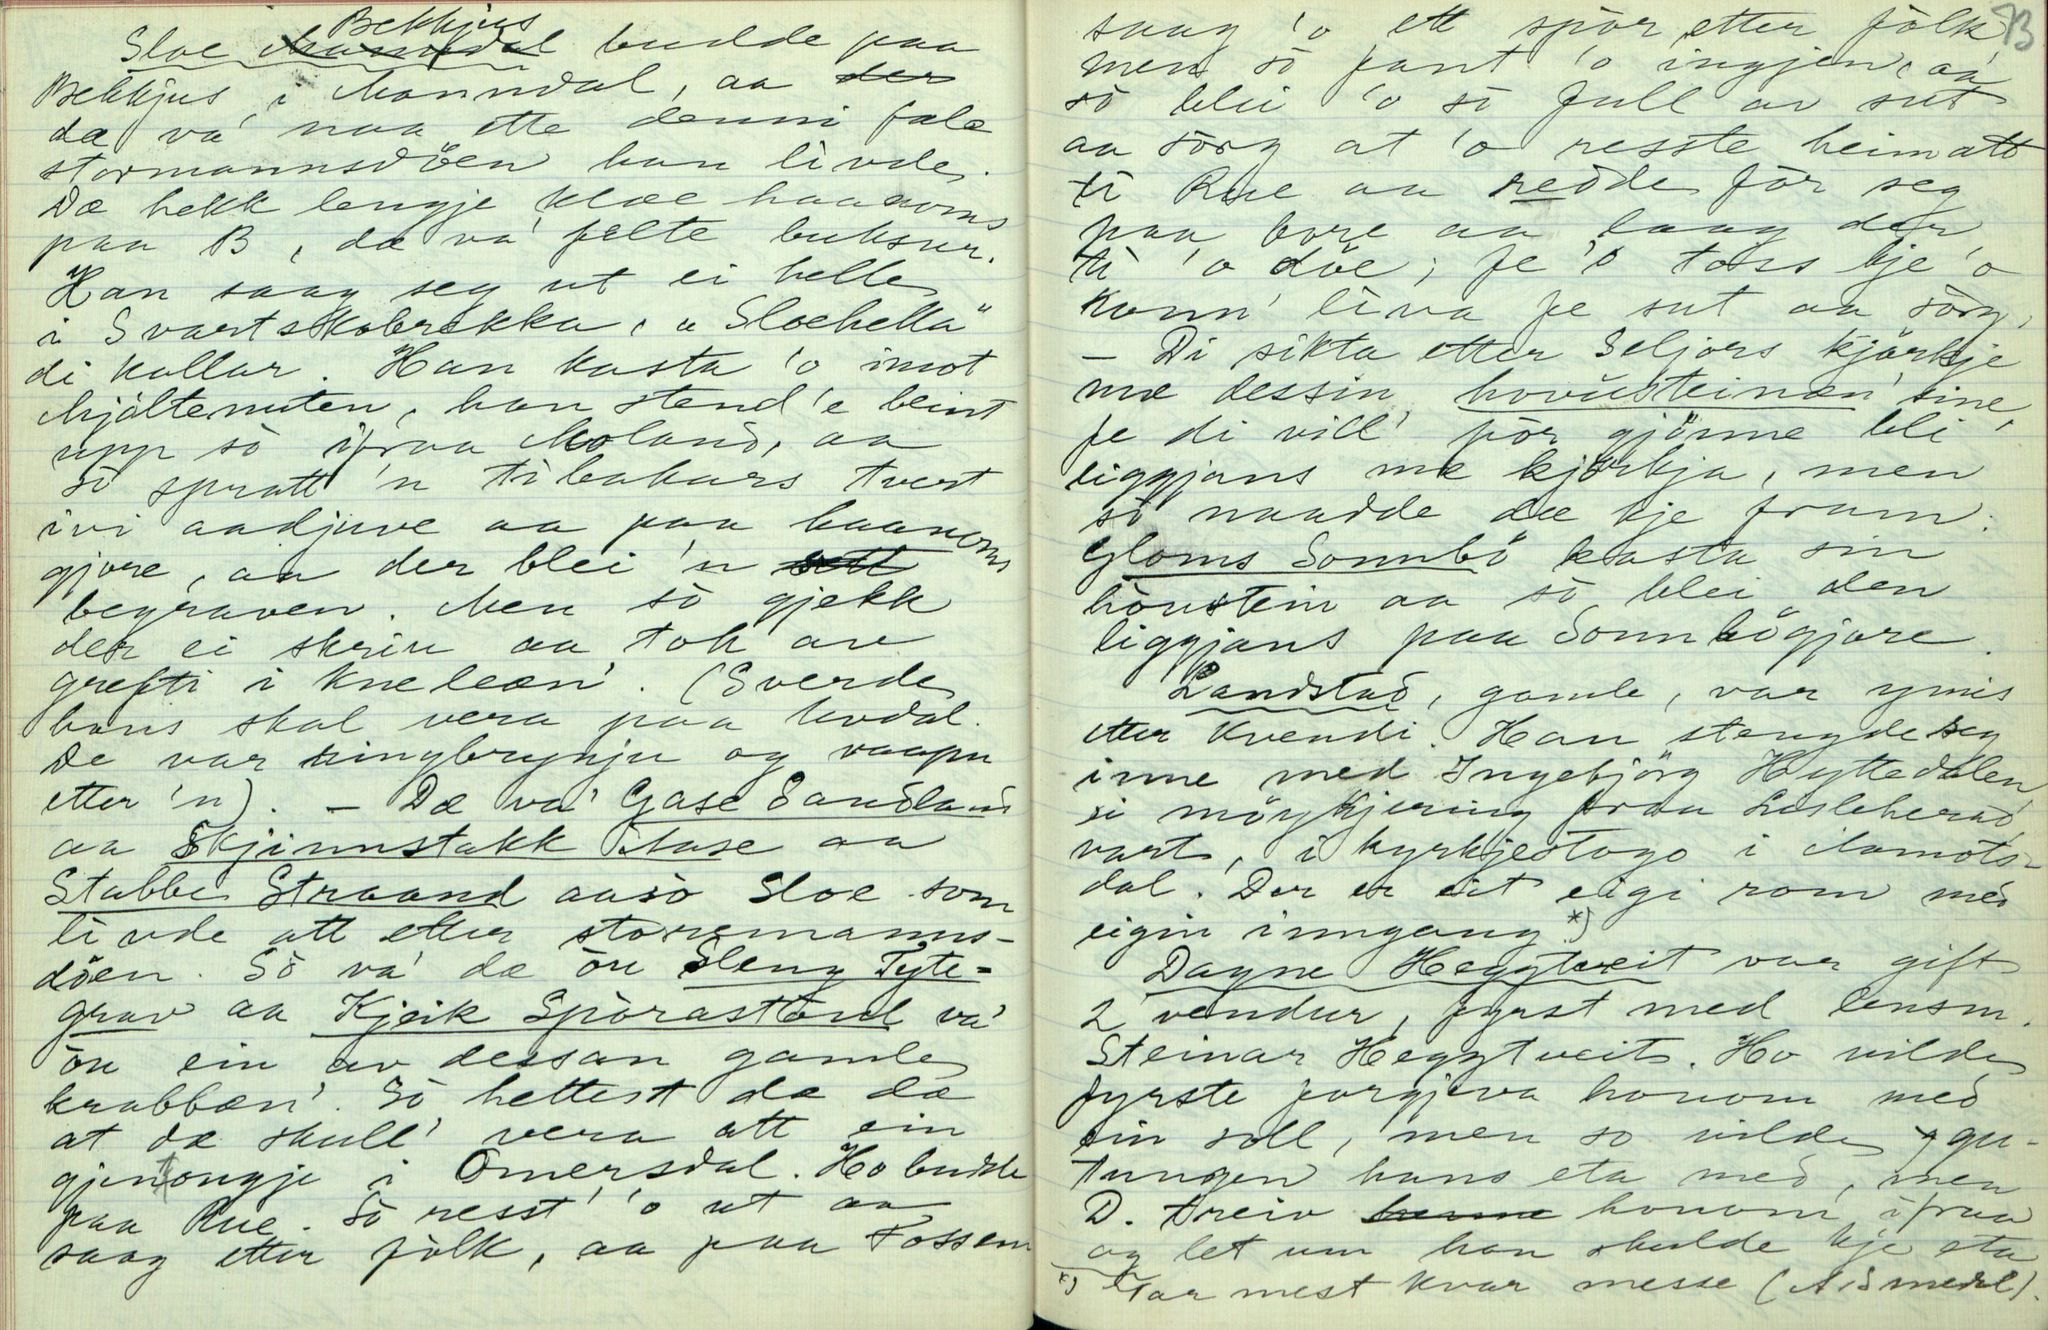 Bekkjus
Sloe Manndal budde paa
Bekkjus i Manndal, aa der
dæ va' naa ette denni fæle
stormannsdöen han livde.
Dæ hekk lengje klæe haanoms
paa B, dæ va' felte buksur.
Han saag seg ut ei helle
i Svartskobrekka, "Sloehella"
di kallar. Han kasta 'o imot
Mjåltenuten, han stend 'e beint
upp sò ifraa Moland, aa
sò spratt 'n tibakars tvert
ivi aadjuve aa paa haanoms
gjore, aa der blei 'n sett
begraven. Men sò gjekk
der ei skriu aa tok av
grefti i kneleæn'. (Sverde
hans skal vera paa Uvdal.
De var ringbrynju og vaapn
etter 'n). - Dæ va' Gase Sandland
aa Skjinnstakk Aase aa
Stabbe Straand aasò Sloe som
livde att etter storemanns-
döen. Sò va' dæ òu Sleng Tyte-
grav aa Kjeik Spòrastönd va'
òu ein av dessan gamle
krabbæn'. Sò hettest dæ dæ
at dæ skull' vera att ein
gjentongje i Ömersdal. Ho budde
paa Rue. Sò resst' 'o ut aa
saag etter fòlk, aa paa Fossem
73
saag 'o ett spòr etter fòlk,
men sò fant 'o ingjen, aa
sò blei 'o sò full av sut
aa sòrg at 'o resste heimatt
ti Rue aa redde fòr seg
paa bore aa laag der
ti 'o döe; fe 'o toss kje 'o
kunn' liva fe sut aa sòrg.
- Di sikta etter Seljors kjörkje
mæ dessin hovusteinæn' sine,
fe di vill' fòr gjönne bli
liggjans mæ kjörkja, men
sò naadde dæ kje fram.
Gloms Sonnbö kasta sin
hòustein aa sò blei den
liggjans paa Sonnbögjore.
Landstad, gamle, var ymis
etter kvendi. Han stengde seg
inne med Ingebjörg Hyttedalen,
ei möykjering fraa Lisleherad
vart, i kyrkjestogo i Aamots-
dal. Der er eit eigi rom med
eigin inngang *)
Dagne Heggtveit var gift
2 vendur, fyrst med lensm.
Steinar Heggtveit. Ho vilde
fyrste forgjeva honom med
ein soll, men so vilde gu-
tungen hans eta med, men
D. dreiv honom ifraa
og let um han skulde kje eta
*) Var mest kvar messe (Aasmedal).